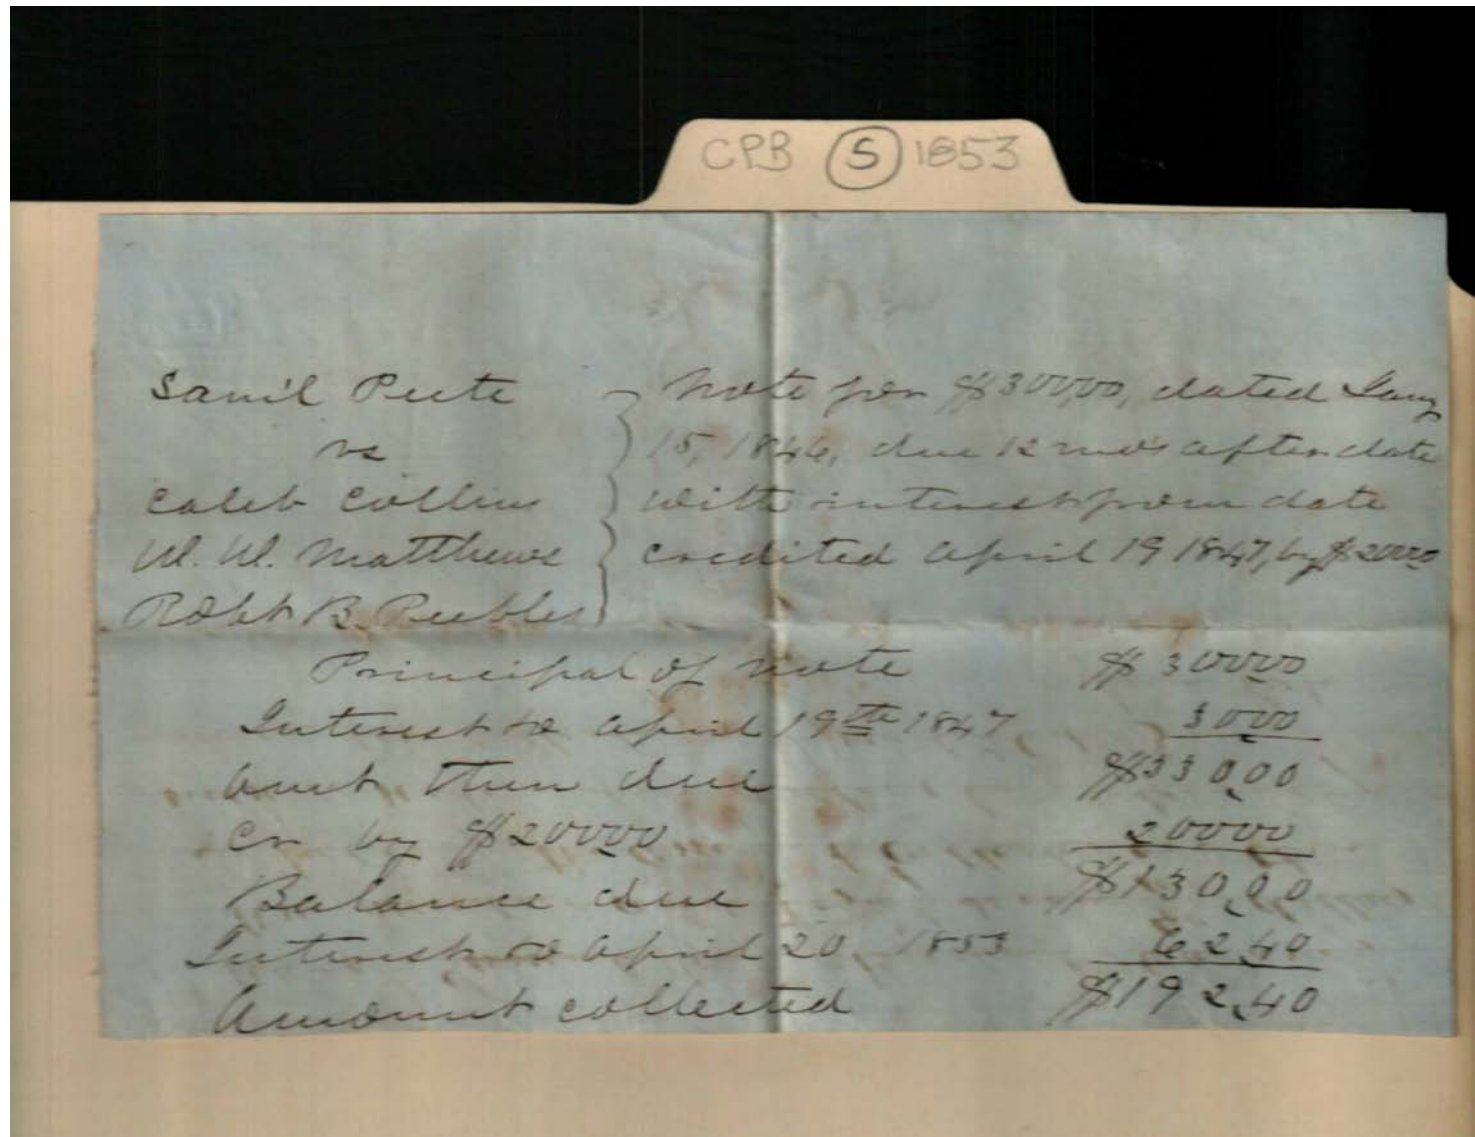 CPB (S) 1853
Sam'l Peete
vs
Caleb Collins
W. W. Matthews
Robt B. Peebles
Note for $300,00, dated Jany
15, 1846, due 12 mo's after date
with interest from date
credited April 19 1847, by $200,00
Principal of note $300,00
Interest to April 19th 1847 30,00
Amt then due $330,00
Cr by $200,00 200,00
Balance due $130,00
Interest to April 20, 1853 62,40
Amount collected $192,40